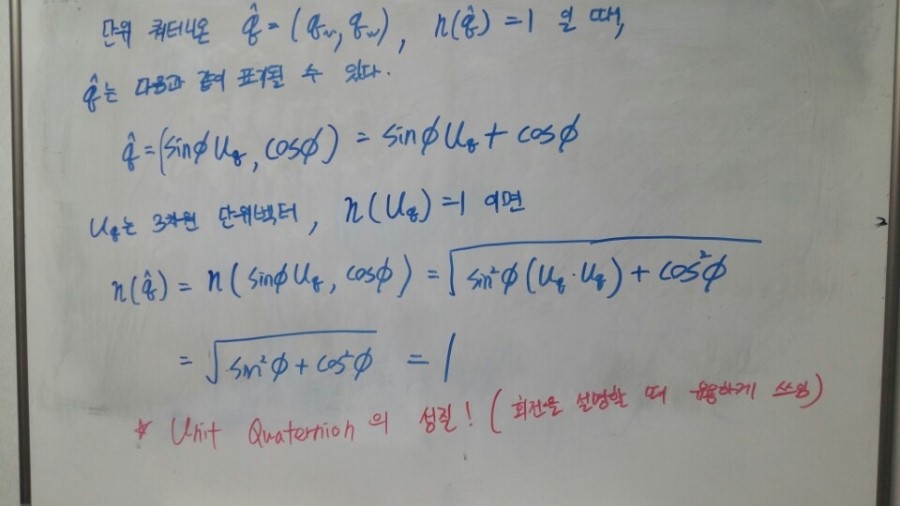 단위 쿼터니온 q̂ = (q_v, q_w), n(q̂) = 1 일 때,
q̂는 다음과 같이 표기될 수 있다.
q̂ = (sinϕ u_q, cosϕ) = sinϕ u_q + cosϕ
u_q는 3차원 단위벡터, n(u_q) = 1 이면
n(q̂) = n(sinϕ u_q, cosϕ) = √(sin²ϕ (u_q · u_q) + cos²ϕ)
= √(sin²ϕ + cos²ϕ) = 1
* Unit Quaternion 의 성질! (회전을 설명할 때 유용하게 쓰임)